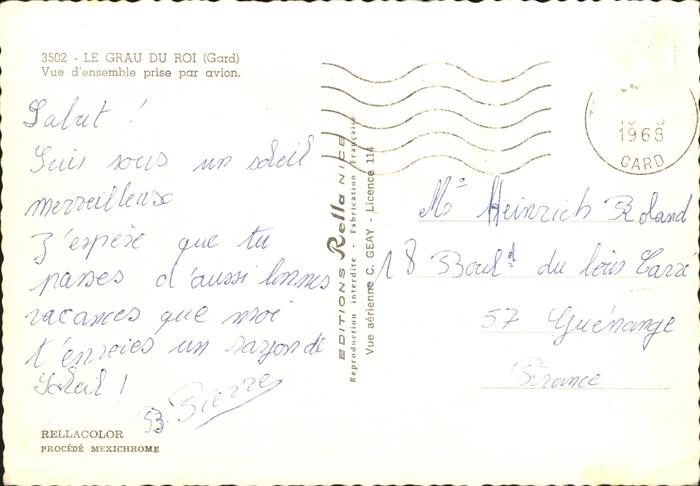 3502 - LE GRAU DU ROI (Gard)
Vue d'ensemble prise par avion.
Salut !
Suis sous un soleil
merveilleux
J'espère que tu
passes d'aussi bonnes
vacances que moi
t'envoies un rayon de
Soleil !
Pierre
RELLACOLOR
PROCÉDÉ MEXICHROME
EDITIONS Rella NICE
Reproduction interdite - Fabrication Française
Vue aérienne C. GEAY - Licence 114
1968
GARD
Mr Heinrich Roland
18 Boul.d du bois Carré
57 Guénange
France